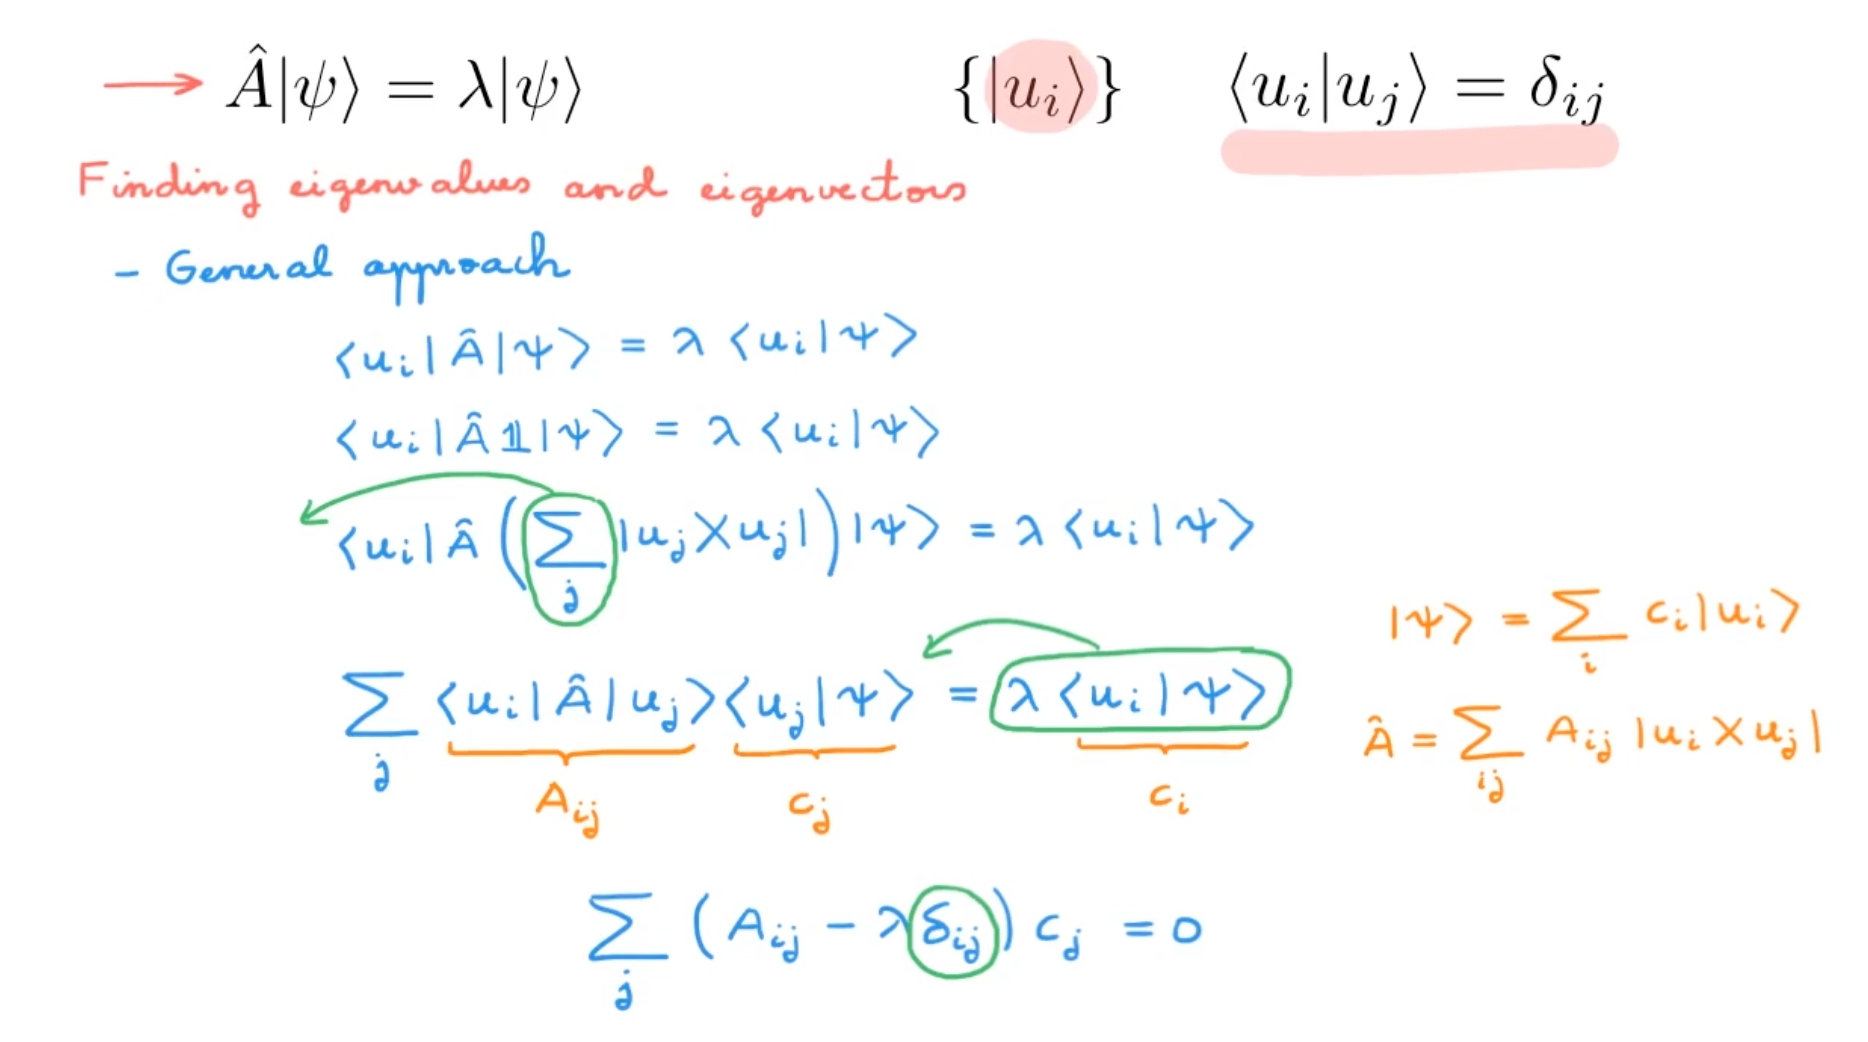 → Â|ψ⟩ = λ|ψ⟩ {|uᵢ⟩} ⟨uᵢ|uⱼ⟩ = δᵢⱼ
Finding eigenvalues and eigenvectors
- General approach
⟨uᵢ|Â|ψ⟩ = λ⟨uᵢ|ψ⟩
⟨uᵢ|Â𝟙|ψ⟩ = λ⟨uᵢ|ψ⟩
⟨uᵢ|Â(∑ⱼ |uⱼ⟩⟨uⱼ|)|ψ⟩ = λ⟨uᵢ|ψ⟩
|ψ⟩ = ∑ᵢ cᵢ|uᵢ⟩
∑ⱼ ⟨uᵢ|Â|uⱼ⟩⟨uⱼ|ψ⟩ = λ⟨uᵢ|ψ⟩
Â = ∑ᵢⱼ Aᵢⱼ |uᵢ⟩⟨uⱼ|
Aᵢⱼ cⱼ cᵢ
∑ⱼ (Aᵢⱼ - λδᵢⱼ) cⱼ = 0